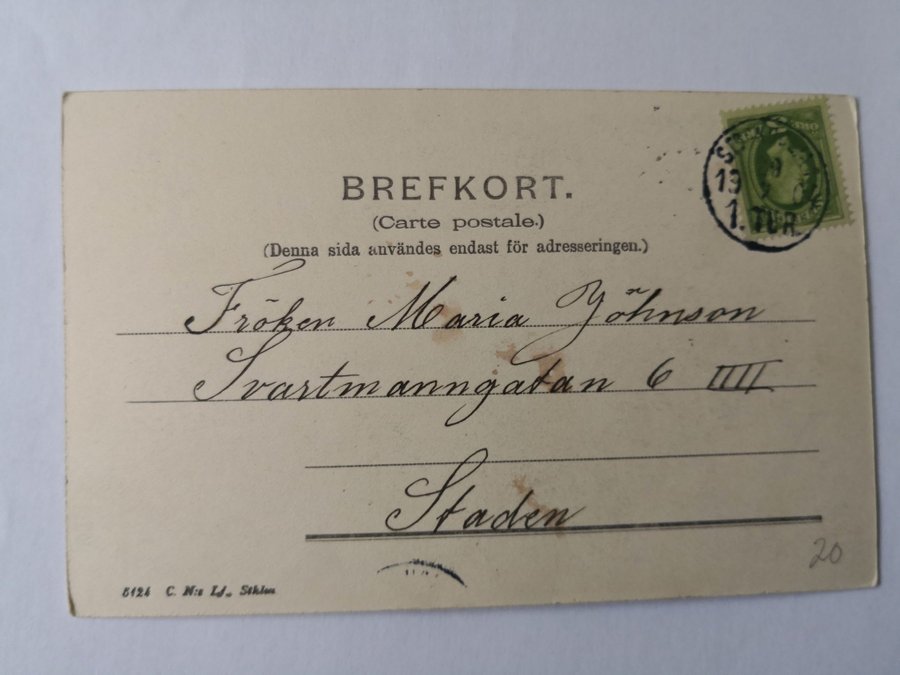 BREFKORT.
(Carte postale.)
(Denna sida användes endast för adresseringen.)
13
1. TUR
Fröken Maria Jöhnson
Svartmanngatan 6 IIII
Staden
20
5124 C. N:s Lj., Sthlm